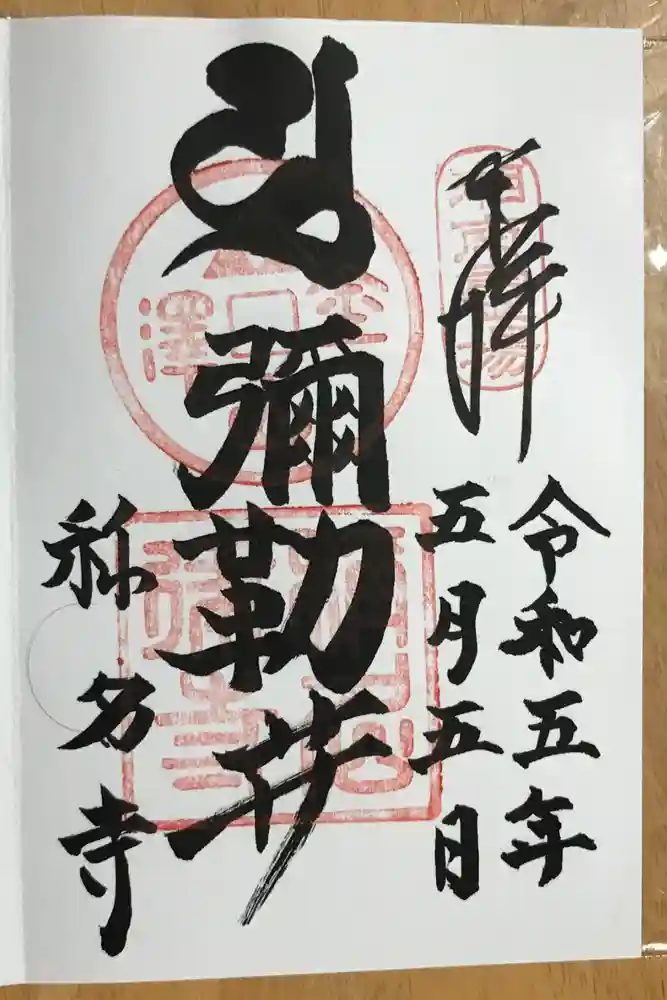 奉拝
令和五年
五月五日
彌勒𦬇
称名寺